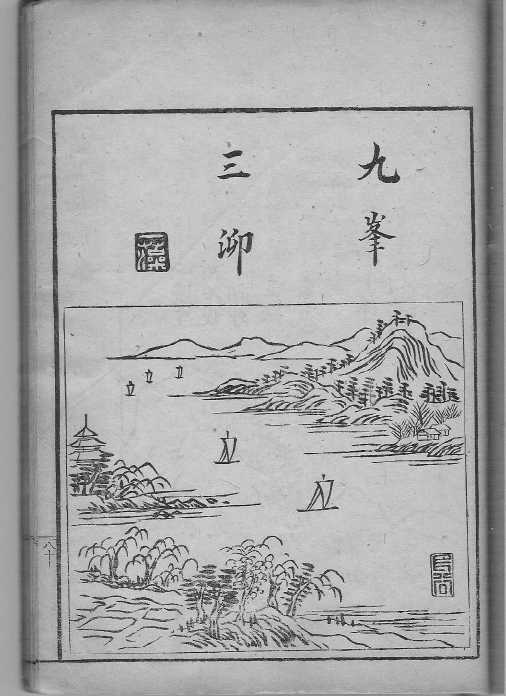 九峯
三泖
八十